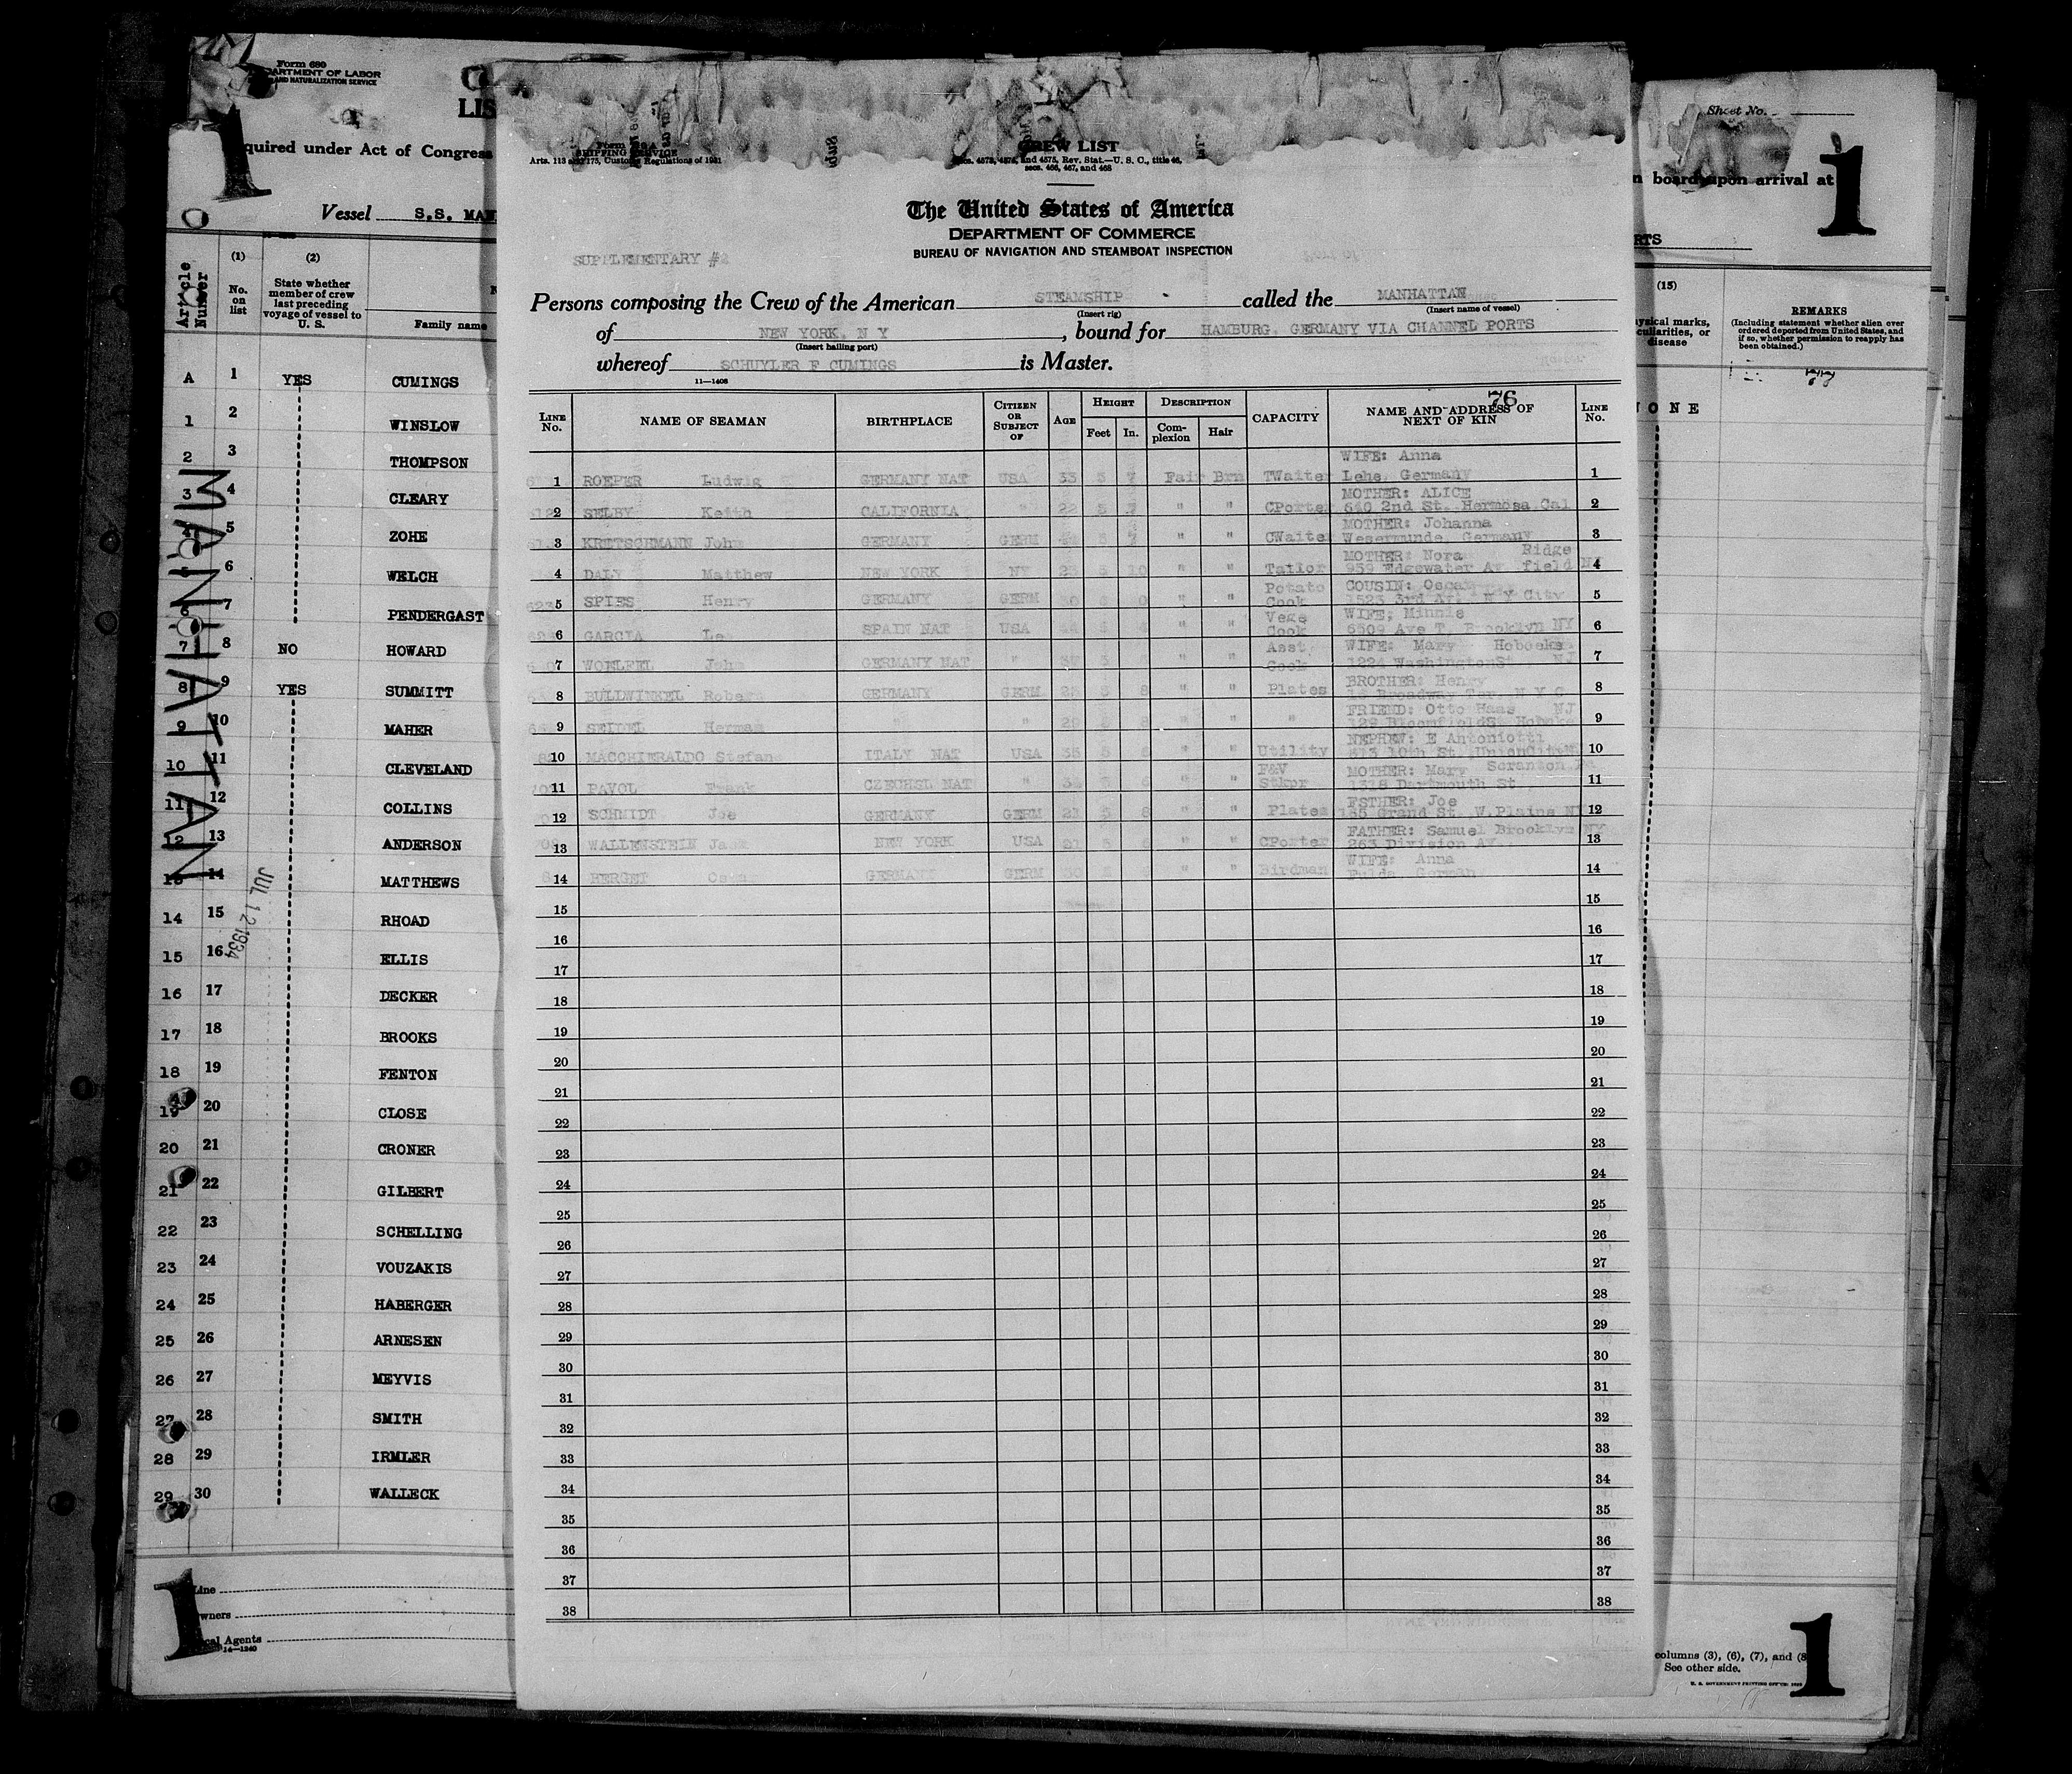 Form 680
DEPARTMENT OF LABOR
AND NATURALIZATION SERVICE
LIS
quired under Act of Congress
Vessel S.S. MAN
Article Number
(1) (2)
No. on list
State whether member of crew last preceding voyage of vessel to U. S.
Family name
A 1 YES CUMINGS
1 2 WINSLOW
2 3 THOMPSON
3 4 CLEARY
4 5 ZOHE
6 WELCH
6 7 PENDERGAST
7 8 NO HOWARD
8 9 YES SUMMITT
9 10 MAHER
10 11 CLEVELAND
11 12 COLLINS
12 13 ANDERSON
13 14 MATTHEWS
14 15 RHOAD
15 16 ELLIS
16 17 DECKER
17 18 BROOKS
18 19 FENTON
19 20 CLOSE
20 21 CRONER
21 22 GILBERT
22 23 SCHELLING
23 24 VOUZAKIS
24 25 HABERGER
25 26 ARNESEN
26 27 MEYVIS
27 28 SMITH
28 29 IRMLER
29 30 WALLECK
MANHATTAN
JUL 12 1934
Line
wners
cal Agents
14—1240
1
1
SHIPPING SERVICE
Arts. 113 and 175, Customs Regulations of 1931
CREW LIST
Secs. 4573, 4574, and 4575, Rev. Stat.—U. S. C., title 46,
secs. 466, 467, and 468
The United States of America
DEPARTMENT OF COMMERCE
BUREAU OF NAVIGATION AND STEAMBOAT INSPECTION
SUPPLEMENTARY #2
Persons composing the Crew of the American STEAMSHIP called the MANHATTAN
(Insert rig) (Insert name of vessel)
of NEW YORK, N Y, bound for HAMBURG. GERMANY VIA CHANNEL PORTS
(Insert hailing port)
whereof SCHUYLER F CUMINGS is Master.
11—1408
76
LINE No. NAME OF SEAMAN BIRTHPLACE CITIZEN OR SUBJECT OF AGE HEIGHT Feet In. DESCRIPTION Complexion Hair CAPACITY NAME AND ADDRESS OF NEXT OF KIN LINE No.
WIFE: Anna
1 ROEPER Ludwig GERMANY NAT USA 33 5 7 Fair Brn TWaiter Lehe, Germany 1
MOTHER: ALICE
2 SELBY Keith CALIFORNIA " 22 5 7 " " CPorter 640 2nd St. Hermosa Cal 2
MOTHER: Johanna
3 KRETSCHMANN John GERMANY GERM 5 7 " " CWaiter Wesermunde, Germany 3
MOTHER: Nora Ridge
4 DALY Matthew NEW YORK NY 23 5 10 " " Tailor 959 Edgewater Av field NJ 4
Potato COUSIN: Oscar
5 SPIES Henry GERMANY GERM " " Cook 1523 3rd Av. N Y City 5
Vege WIFE: Minnie
6 GARCIA SPAIN NAT USA " " Cook 6509 Ave T Brooklyn NY 6
Asst WIFE: Mary Hoboken
7 WOELFEL John GERMANY NAT " " " Cook 1224 Washington St NJ 7
BROTHER: Henry
8 BULLWINKEL Robert GERMANY GERM 5 8 " " Plates Broadway Ter. N Y C 8
FRIEND: Otto Haas NJ
9 SEIDEL Herman " " 29 5 8 " " " 129 Bloomfield St Hoboke 9
NEPHEW: E Antoniotti
10 MACCHIERALDO Stefan ITALY NAT USA 35 5 " " Utility 413 10th St. Union City 10
F&V MOTHER: Mary Scranton Pa
11 PAVOL Frank CZECHSL NAT " 5 " " Stkpr 1318 Dartmouth St 11
FSTHER: Joe
12 SCHMIDT Joe GERMANY GERM 21 5 8 " " Plates 155 Grand St. W.Plains N 12
FATHER: Samuel Brooklyn NY
13 WALLENSTEIN Jack NEW YORK USA 21 5 " " CPorter 263 Division Av. 13
WIFE: Anna
14 BERGET GERMANY GERM " " Birdman Fulda, German 14
15 15
16 16
17 17
18 18
19 19
20 20
21 21
22 22
23 23
24 24
25 25
26 26
27 27
28 28
29 29
30 30
31 31
32 32
33 33
34 34
35 35
36 36
37 37
38 38
Sheet No.
n board upon arrival at
1
RTS
(15)
ysical marks, culiarities, or disease
REMARKS
(Including statement whether alien ever ordered deported from United States, and if so, whether permission to reapply has been obtained.)
NONE
columns (3), (6), (7), and (8
See other side.
U. S. GOVERNMENT PRINTING OFFICE
1